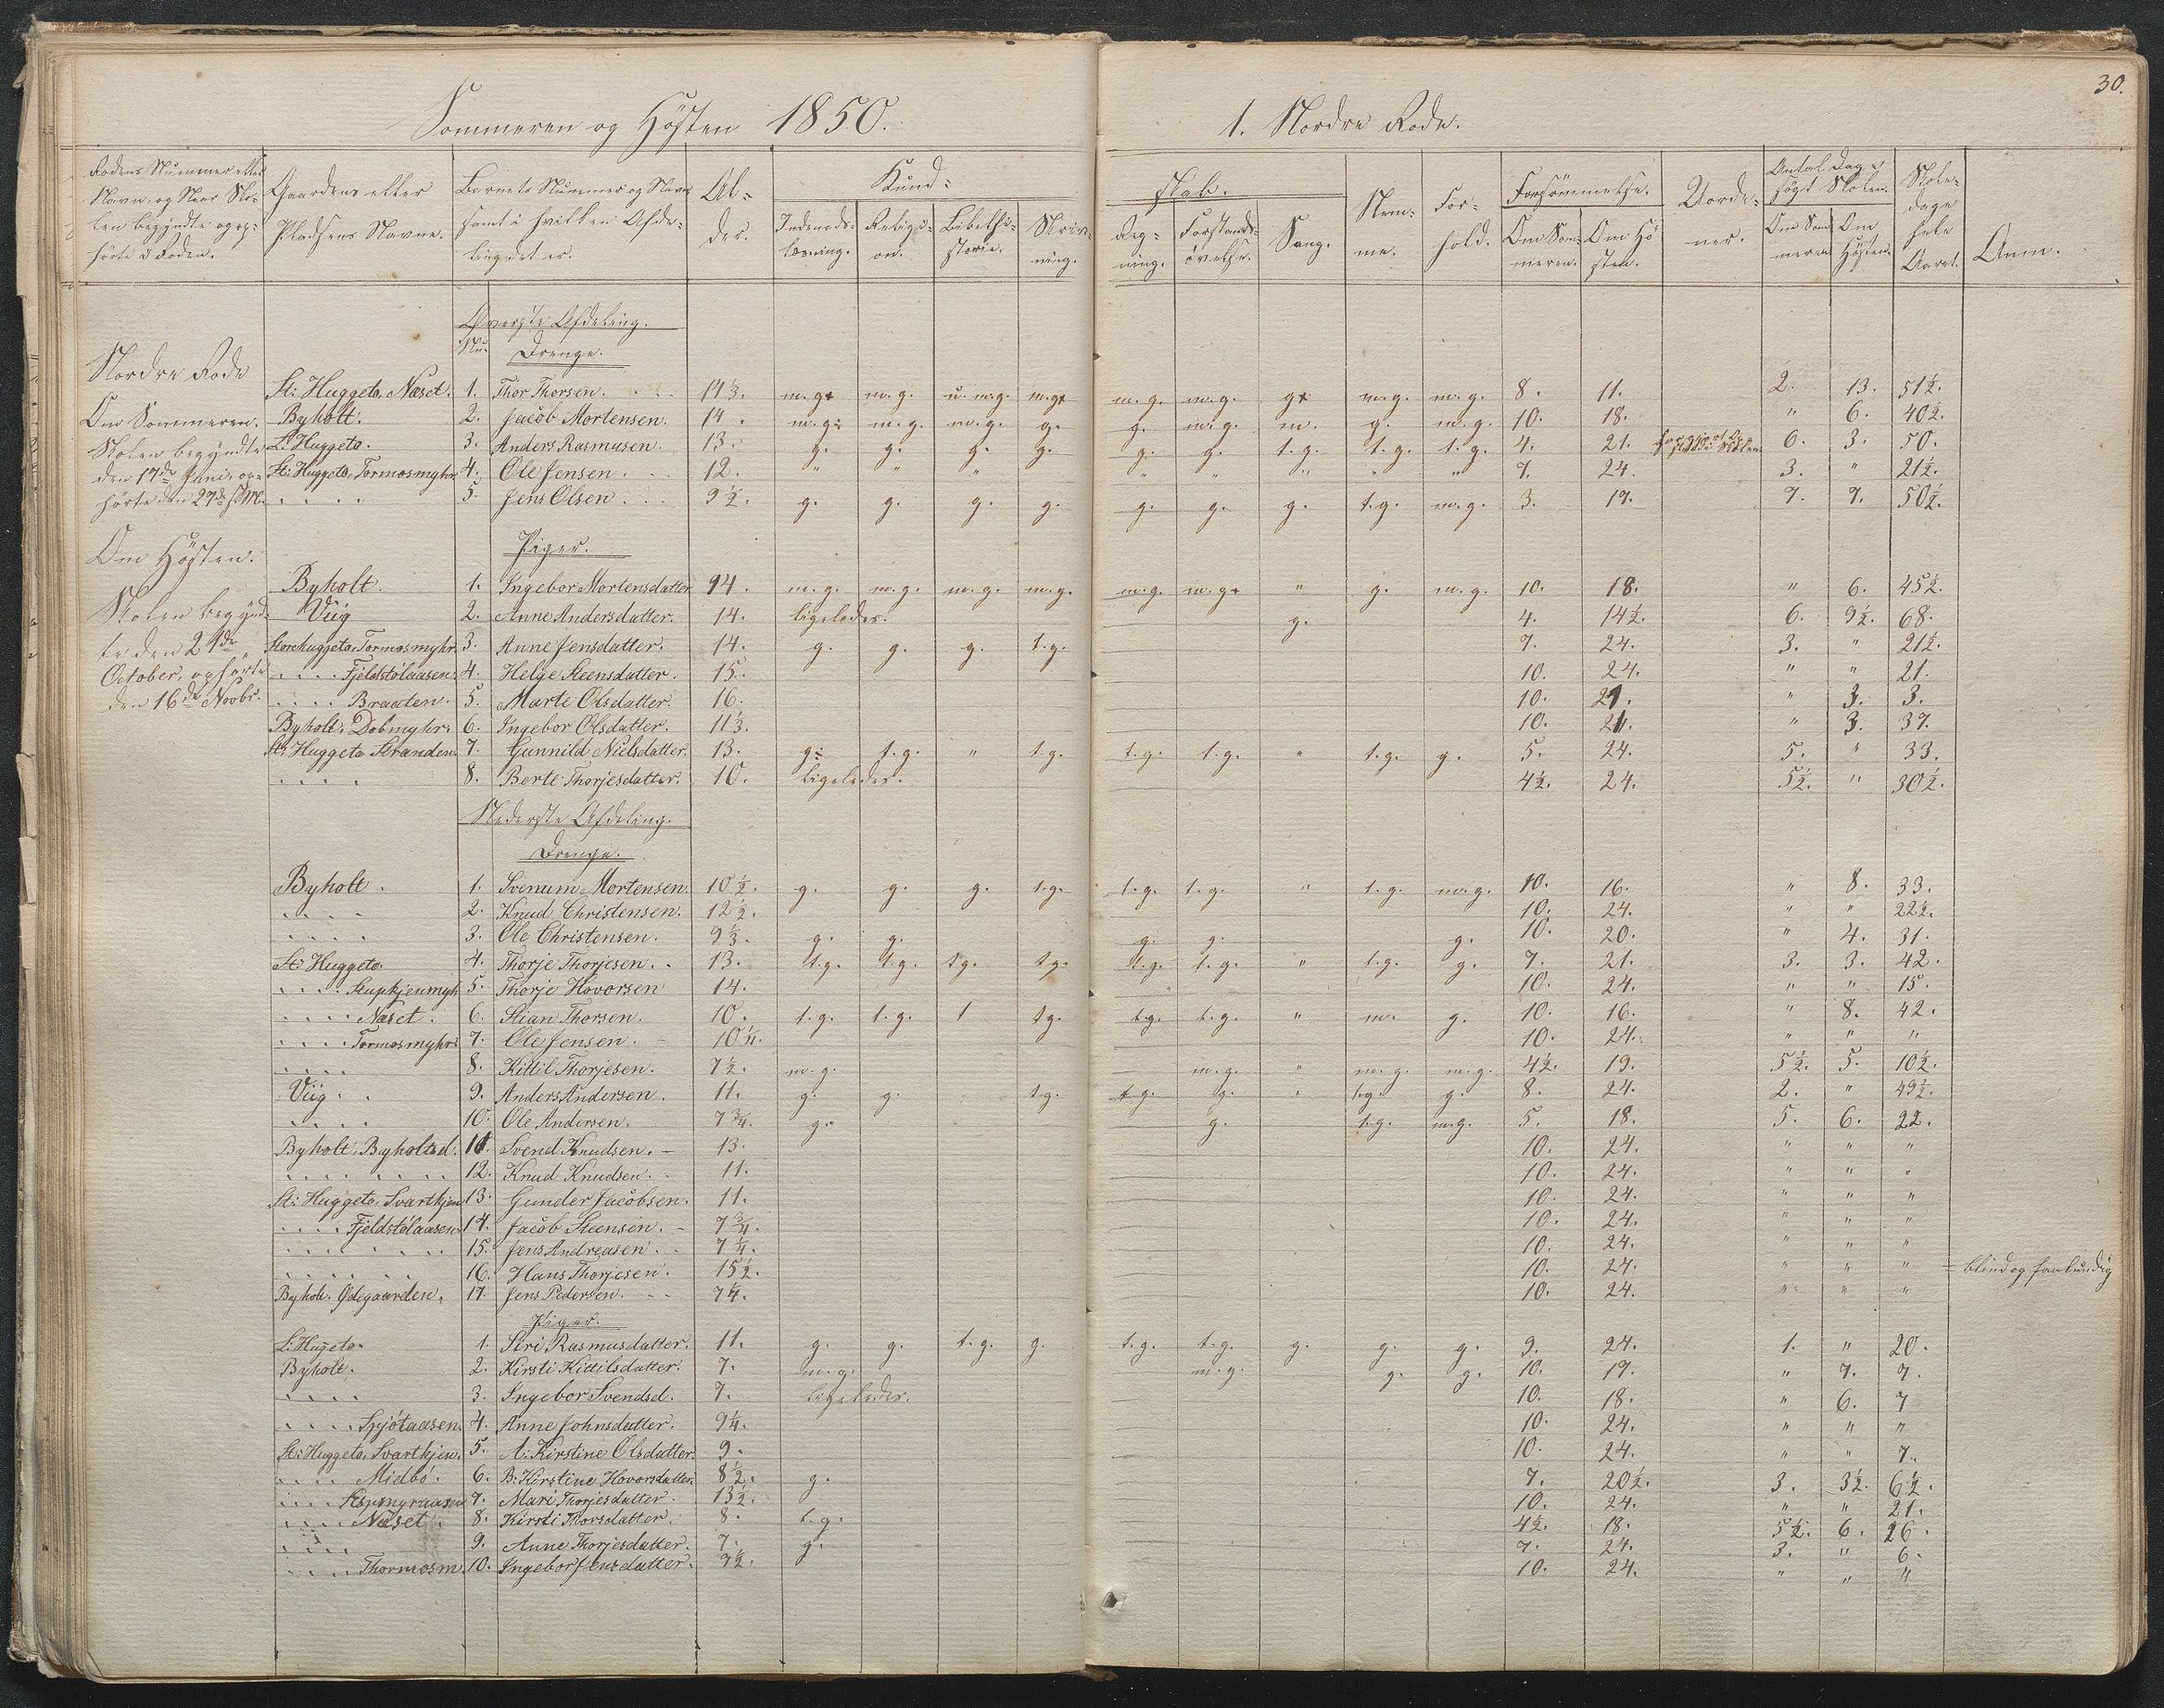 30.
Sommeren og Høsten 1850.
1. Nordre Rode.
Rodens Nummer eller Navn, og Naar Skolen begyndte og ophørte i Roden.
Gaardens eller Pladsens Navne.
Barnets Nummer og Navn samt i hvilken Afdeling det er.
Alder.
Kundskab.
Indenadslæsning.
Religion.
Bibelhistorie.
Skrivning.
Regning.
Forstandsøvelse.
Sang.
Nemme.
Forhold.
Forsømmelse.
Om Sommeren.
Om Høsten.
Antal Dage søgt Skolen.
Om Sommeren
Om Høsten.
Skoledage hele Aaret.
Anm.
Nordre Rode
Om Sommeren.
Skolen begyndte
den 17de Juni, op-
hørte den 27de s. M.
Om Høsten.
Skolen begynd-
te den 21de
October, ophørte
den 16de Novbr.
Øverste Afdeling.
No. Drenge.
St: Huggeto, Næset. 1. Thor Thorsen. 14 1/3. m.g. m.g. u.m.g. m.g. m.g. m.g. g. m.g. m.g. 8. 11. 2. 13. 51 1/2.
Byholt. 2. Jacob Mortensen. 14. m.g. m.g. m.g. g. g. m.g. m. g. m.g. 10. 18. " 6. 40 1/2.
L: Huggeto. 3. Anders Rasmusen. 13. g. g. g. g. g. g. t.g. t.g. t.g. 4. 21. 6. 3. 50.
St: Huggeto, Tormosmyhr. 4. Ole Jensen. 12. " " " " " " " " " 7. 24. 3. " 21 1/2.
. . . . 5. Jens Olsen. 9 1/2. g. g. g. g. g. g. g. t.g. m.g. 3. 17. 7. 7. 50 1/2.
Piger.
Byholt. 1. Ingebor Mortensdatter. 14. m.g. m.g. m.g. m.g. m.g. m.g. " g. m.g. 10. 18. " 6. 45 1/2.
Viig 2. Anne Andersdatter. 14. ligeledes. g. 4. 14 1/2. 6. 9 1/2. 68.
Store Huggeto, Tormosmyhr. 3. Anne Jensdatter. 14. g. g. g. t.g. 7. 24. 3. " 21 1/2.
. . . . Fjeldstølaasen. 4. Helge Steensdatter. 15. 10. 24. " " 21.
. . . . Braaten. 5. Marte Olsdatter. 16. 10. 21. " 3. 3.
Byholt, Dobmyhr. 6. Ingebor Olsdatter. 11 1/3. 10. 21. " 3. 37.
St: Huggeto Stranden. 7. Gunnild Nielsdatter. 13. g. t.g. " t.g. t.g. t.g. " t.g. g. 5. 24. 5. " 33.
. . . . 8. Berte Thorjesdatter. 10. ligeledes. 4 1/2. 24. 5 1/2. " 30 1/2.
Nederste Afdeling.
Drenge.
Byholt. 1. Svenum Mortensen. 10 1/2. g. g. g. t.g. t.g. t.g. " t.g. m.g. 10. 16. " 8. 33.
. . . . 2. Knud Christensen. 12 1/2. 10. 24. " " 22 1/2.
. . . . 3. Ole Christensen. 9 1/3. g. g. g. g. g. 10. 20. " 4. 31.
St: Huggeto. 4. Thorje Thorjesen. 13. t.g. t.g. t.g. t.g. t.g. t.g. " t.g. g. 7. 21. 3. 3. 42.
. . . . 5. Thorje Hovorsen 14. 10. 24. " " 15.
. . . . Næset. 6. Stian Thorsen. 10. t.g. t.g. t t.g. t.g. t.g. " m. g. 10. 16. " 8. 42.
. . . . Tormosmyhr. 7. Ole Jensen. 10 1/4. 10. 24. " " "
. . . . 8. Kittil Thorjesen. 7 1/2. m.g. m.g. " m.g. m.g. 4 1/2. 19. 5 1/2. 5. 10 1/2.
Viig. 9. Anders Andersen. 11. g. g. t.g. t.g. g. " t.g. g. 8. 24. 2. " 49 1/2.
. . . . 10. Ole Andersen. 7 3/4. g. g. t.g. m.g. 5. 18. 5. 6. 22.
Byholt, Byholtsd. 11. Svend Knudsen. 13. 10. 24. " " "
. . . . 12. Knud Knudsen. 11. 10. 24. " " "
St: Huggeto, Svartkjen 13. Gunder Jacobsen. 11. 10. 24. " " "
. . . . Fjeldstølaasen. 14. Jacob Steensen. 7 3/4. 10. 24. " " "
. . . . 15. Jens Andreasen. 7 1/4. 10. 24. " " "
. . . . 16. Hans Thorjesen. 15 1/2. 10. 24. " " " = blind og
Byholt. Ødegaarden. 17. Jens Pedersen. 7 1/4. 10. 24. " " "
Piger.
L: Hugeto. 1. Siri Rasmusdatter. 11. g. g. t.g. g. t.g. t.g. g. g. g. 9. 24. 1. " 20.
Byholt. 2. Kirsti Kittilsdatter. 7. m.g. m.g. g. g. 10. 17. " 7. 7.
. . . . 3. Ingebor Svendsd. 7. ligeledes. 10. 18. " 6. 7
. . . . Spjøtaasen. 4. Anne Johnsdatter. 9 1/4. 10. 24. " " "
St: Huggeto, Svartkjen. 5. A: Kirstine Olsdatter. 9. 10. 24. " " 7.
. . . . Midbø. 6. B: Kirstine Hovorsdatter. 8 1/2. g. 7. 20 1/2. 3. 3 1/2. 6 1/2.
. . . . 7. Mari Thorjesdatter. 13 1/2. 10. 24. " " 21.
. . . . Næset. 8. Kirsti Thorsdatter. 8. t.g. 4 1/2. 18. 5 1/2. 6. 26.
. . . . 9. Anne Thorjesdatter. 7. g. 7. 24. 3. " 6.
. . . . Thormosm. 10. Ingebor Jensdatter. 9 1/2. 10. 24. " " "